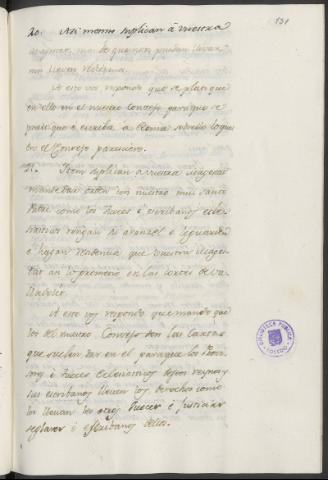 131
20. Asi mesmo suplican á vuestra
magestad mande que no se puedan llevar
ni lleven
A esto vos respondo que se platique
en ello en el nuestro Consejo para que se
provea que se escriba a Roma sobre lo que
los del Consejo pareciere.
21. Item suplican a vuestra Magestad
mande dar orden con nuestro mui santo
Padre como los Jueces é escribanos ecle-
siasticos tengan su aranzel é le guarden
é hagan residencia que vuestra Mages-
tad an lo prometio en las Cortes de Va-
lladolid.
A esto vos respondo que mando que
los del nuestro Consejo den las Cartas
que suelen dar en el para que los Proviso-
res é Jueces Eclesiasticos destos reynos y
sus escribanos lleven los derechos como
los llevan los otros Jueces é Justicias
seglares é escribanos dellos.
BIBLIOTECA PUBLICA
TOLEDO